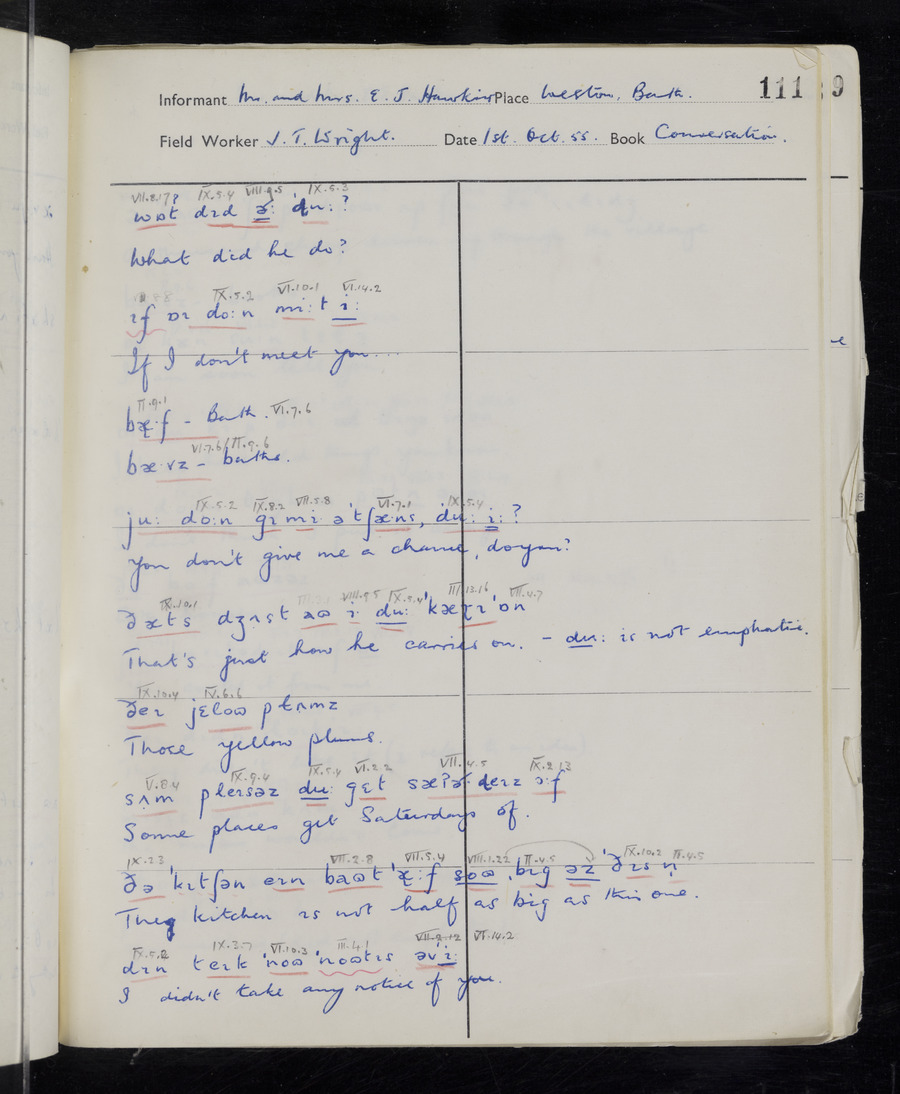 111 9
Informant Mr. and Mrs. E. J. Hawkins Place Weston, Bath.
Field Worker J. T. Wright. Date 1st. Oct. 55. Book Conversation.
IX.5.4 VIII.9.5 IX.5.3
wɒt dɪd ə: 'du:?
What did he do?
IX.5.2 VI.10.1 VI.14.2
ɪf ɒɪ do:n mi:t i:
If I don't meet you...
II.9.1
bæ·f - Bath. VI.7.6
VI.7.6/II.9.6
bæ·vz - baths.
IX.5.2 IX.8.2 VII.5.8 VI.7.1 IX.5.4
ju: do:n gɪ mi ə'tʃæ·ns, du: i:?
You don't give me a chance, do you?
IX.10.1 VIII.9.5 IX.5.4 III.13.16 VII.4.7
ðæts dʒʌst aʊ i: du: 'kæɽɪ 'ɒn
That's just how he carries on. - du: is not emphatic.
IX.10.4 IV.6.6
ðeɪ jɛloʊ plʌmz
Those yellow plums.
V.8.4 IX.9.4 IX.5.4 VI.2.2 VII.4.5 IX.2.13
sʌm pleɪsəz du: gɛt sæʔədeɪz ɔ:f
Some places get Saturdays of.
IX.2.3 VII.2.8 VII.5.4 VIII.1.22 II.4.5 IX.10.2 II.4.5
ðə 'kɪtʃən eɪn baʊt 'æ:f soʊ bɪg əz 'ðɪs n̩
They kitchen is not half as big as this one.
IX.5.2 IX.3.7 VI.10.3 III.4.1 VII.2.12 VI.14.2
dɪn teɪk 'noʊ 'noʊtɪs əv 'i:
I didn't take any notice of you.